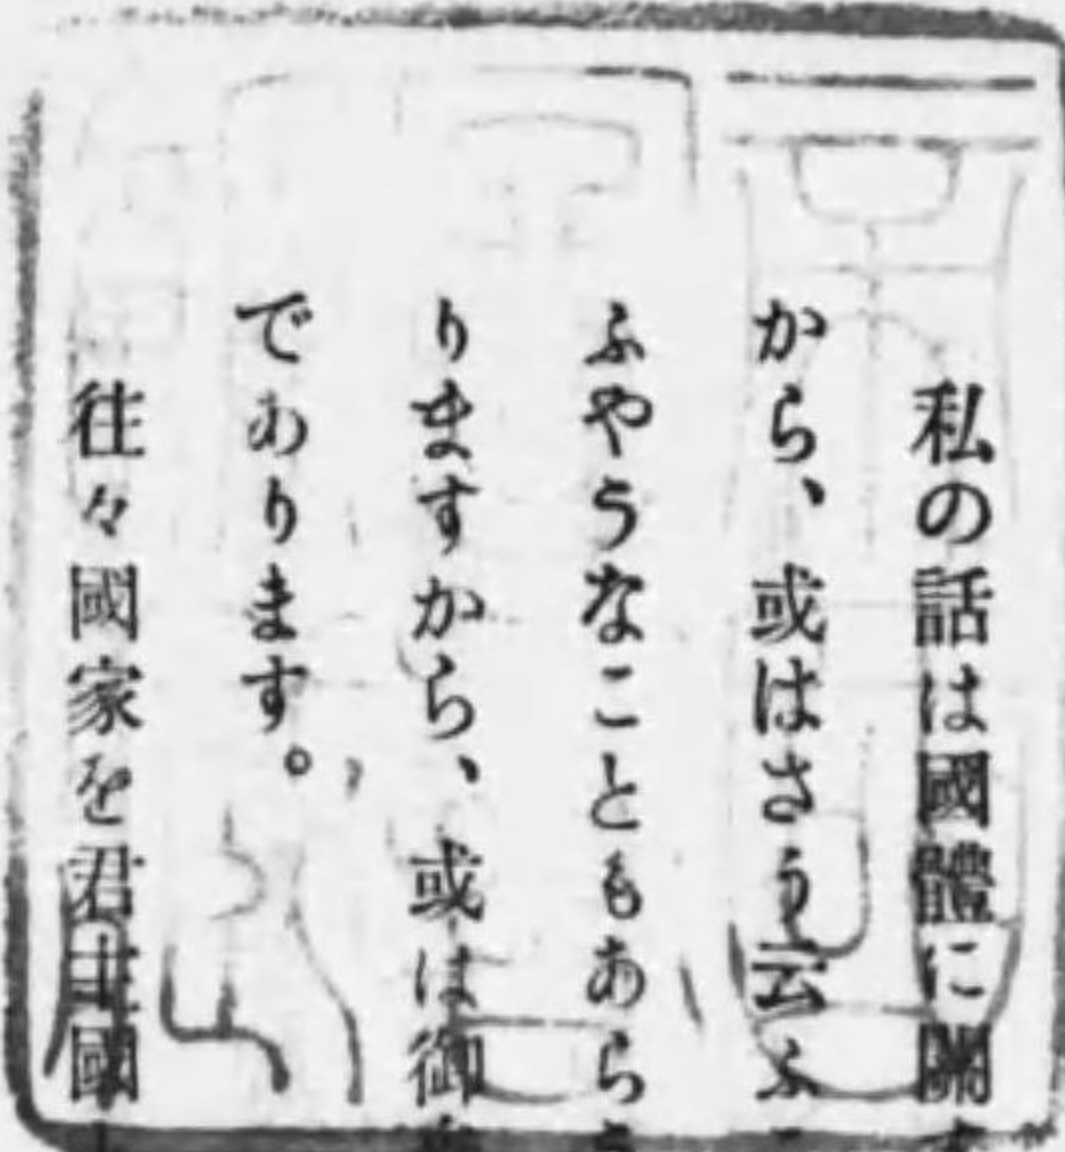 私の話は國體に關す
から、或はさう云ふこ
ふやうなこともあらう
りますから、或は御
であります。
往々國家を君主國